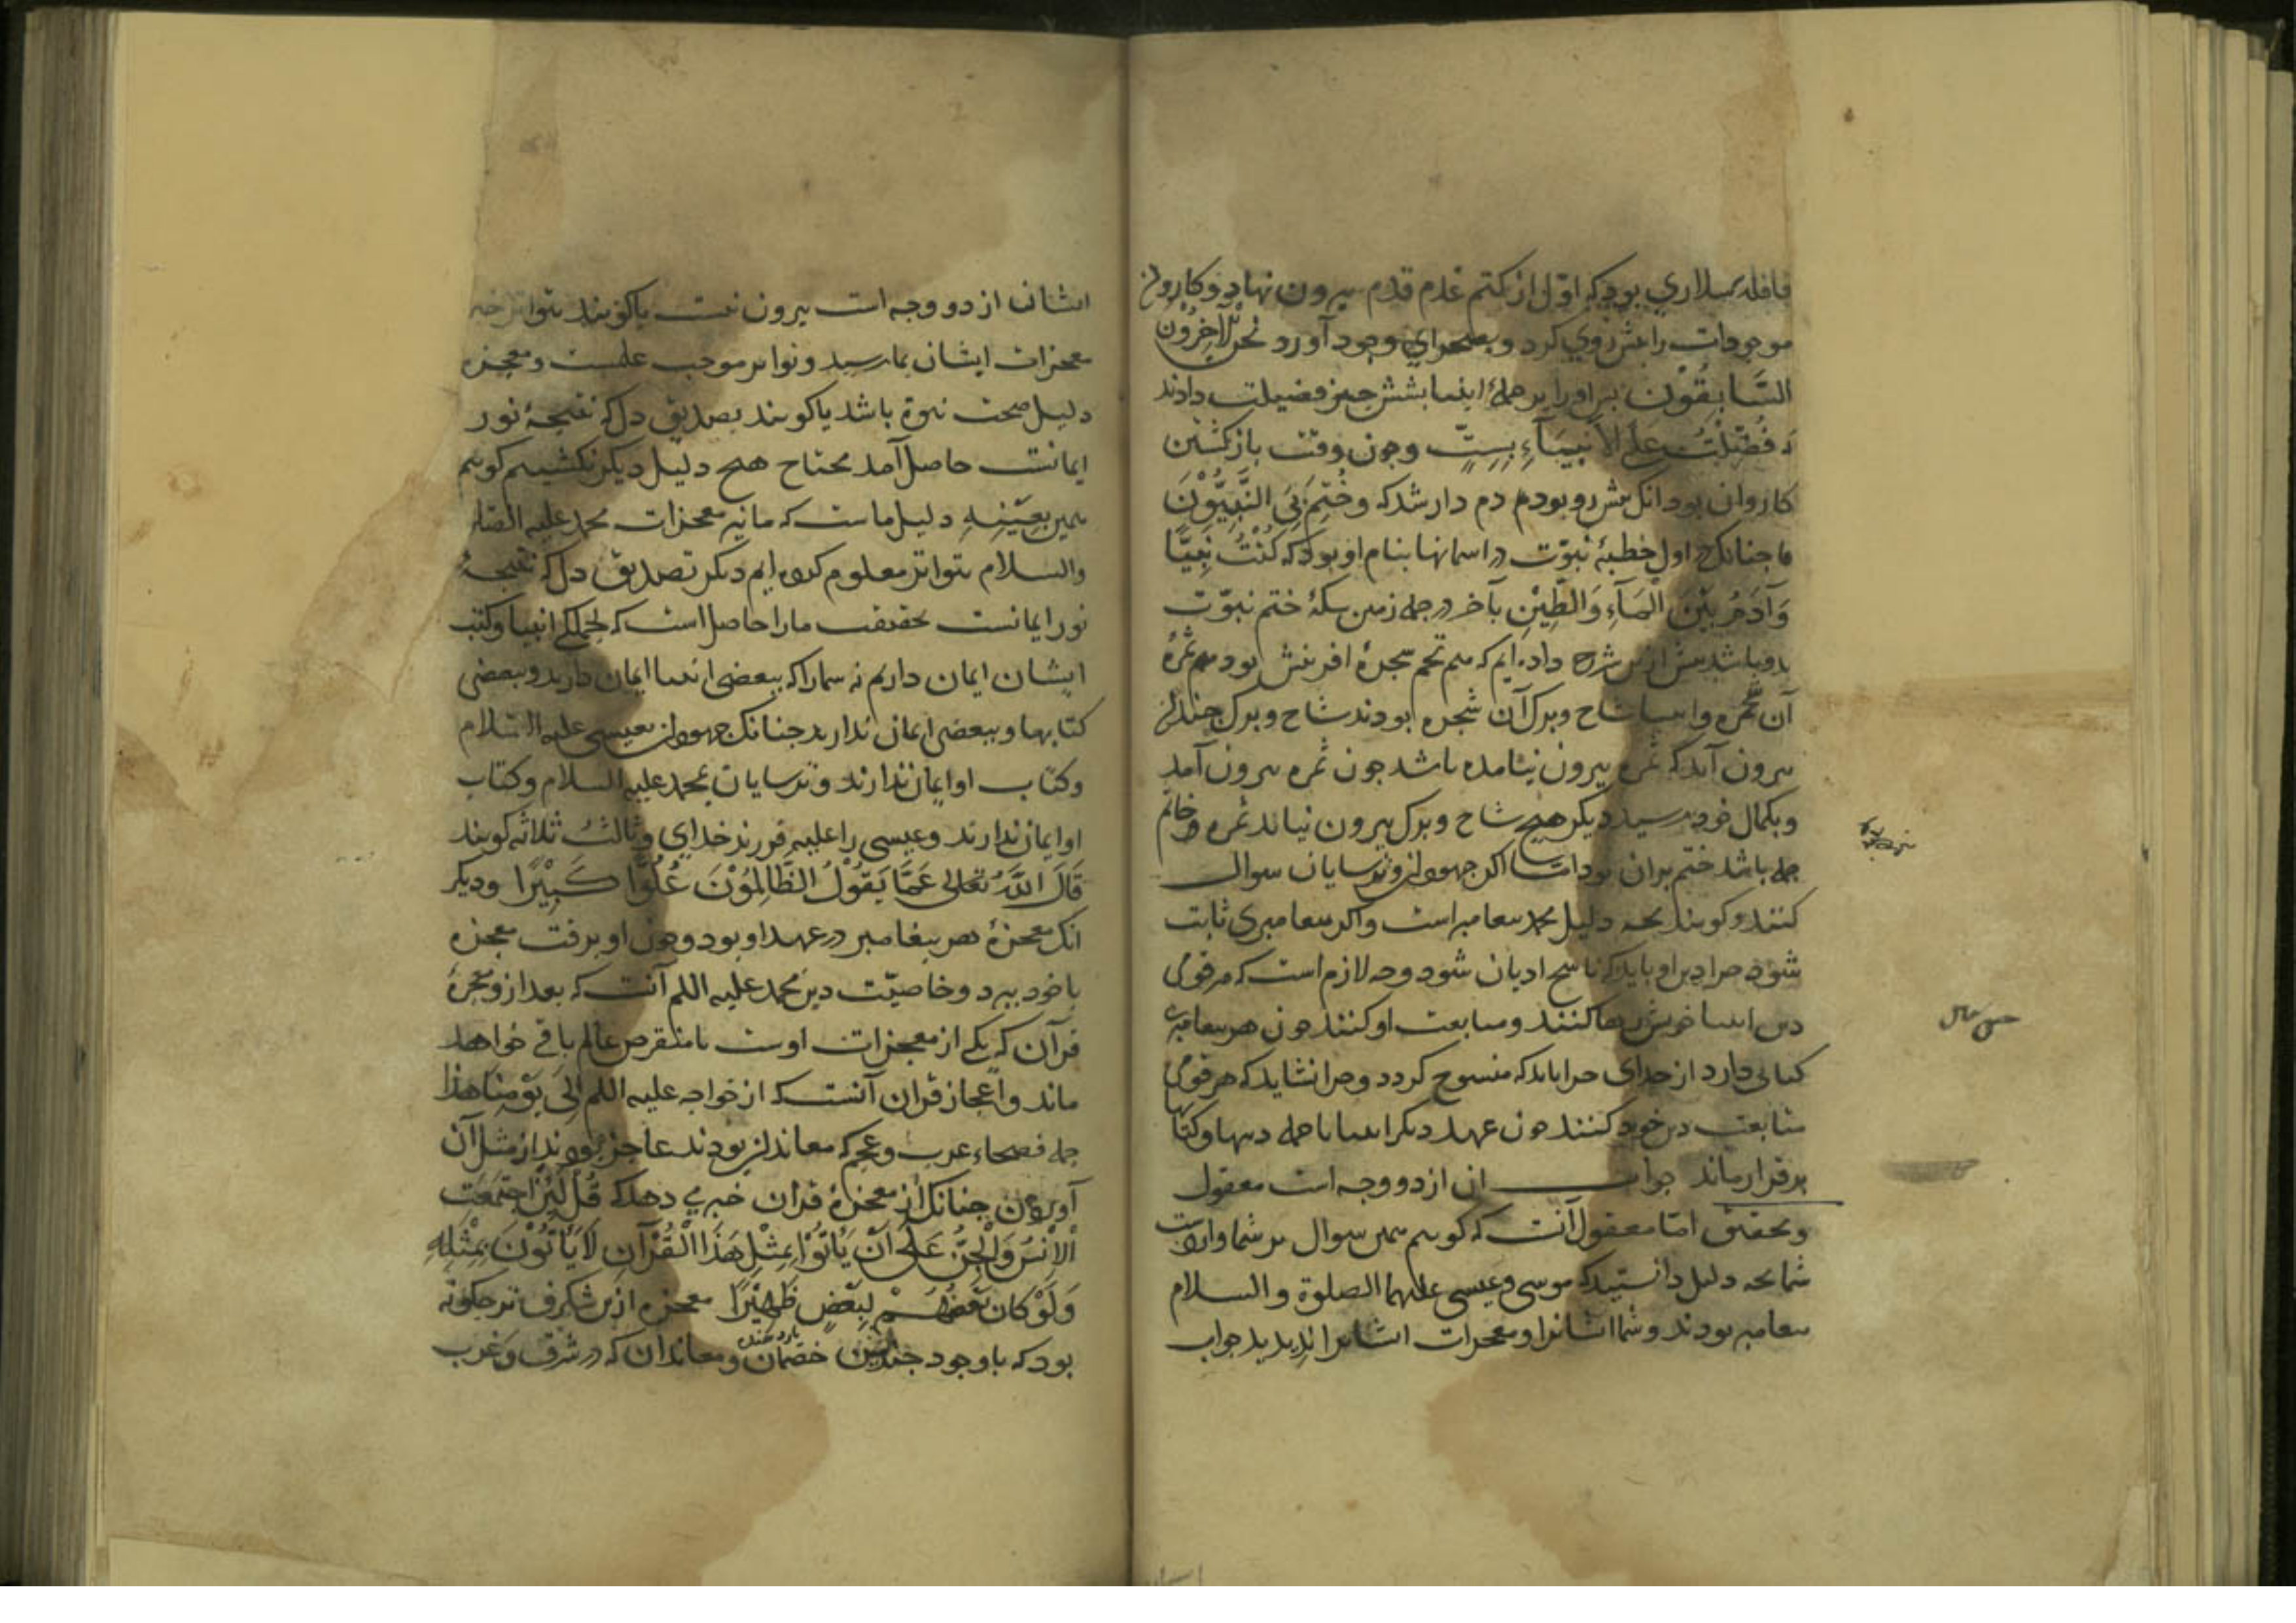 قافله سلاری بود که اول از کتم عدم قدم بیرون نهاد و کاروان
موجودات را پیش روی کرد و بصحرای وجود آورد نحن الآخرون
السابقون پس او را بر جمله انبیا بشش چیز فضیلت دادند
که فُضِّلْتُ عَلَی الاَنبِیَآءِ بِسِتٍّ وچون وقت بازکشتن
کاروان بود انک پیش رو بودم دم دار شد که وَخُتِمَ بِیَ النَّبِیُّوْنَ
تا جنانک اول خطبهٔ نبوّت در اسمانها بنام او بود که کُنْتُ نَبِیًّا
وَآدَمُ بَیْنَ الْمَآءِ وَالطِّیْنِ بآخر در جمله زمین سکهٔ ختم نبوّت
بدو باشد پیش ازین شرح داده ایم که هم تخم شجرهٔ افرینش بود هم ثمرهٔ
آن شجره وانبیا شاخ وبرک آن شجره بودند شاخ وبرک جندان
بیرون آید که ثمره بیرون نیامده باشد جون ثمره بیرون آمد
وبکمال خود رسید دیکر هیچ شاخ وبرک بیرون نیاند ثمره خاتم
جمله باشد ختم بران بود اما اکر جهودان وترسایان سوال
کنند وکویند بچه دلیل محمد پیغامبر است واکر پیغامبری ثابت
شود چرا دین او باید که ناسخ ادیان شود وچه لازم است که هر قومی
دین انبیا خویش رها کنند ومتابعت او کنند چون هر پیغامبری
کتابی دارد از خدای چرا باید که منسوخ کردد وچرا نشاید که هر قومی
متابعت دین خود کنند چون عهد دیکر انبیا تا جمله دینها وکتابها
برقرار ماند جواب ان از دو وجه است معقول
وتحقیق امّا معقول آنست که کوییم همین سوال بر شما وارد است
شما بچه دلیل دانستید که موسی وعیسی علیهما الصلوة والسلام
پیغامبر بودند وشما ایشانرا ومعجزات ایشانرا ندیدید جواب
ایشان از دو وجه است بیرون نیست یا کویند بتواتر خبر
معجزات ایشان بما رسید وتواتر موجب علمست ومعجزه
دلیل صحت نبوة باشد یا کویند بصدیق دل که نتیجهٔ نور
ایمانست حاصل آمد محتاج هیچ دلیل دیکر نکشتیم کوییم
همین بِعَیْنِهِ دلیل ماست که ما نیز معجزات محمد علیه الصلوة
والسلام بتواتر معلوم کرده ایم دیکر تصدیق دل که نتیجهٔ
نور ایمانست بحقیقت ما را حاصل است که بجملکی انبیا وکتب
ایشان ایمان داریم نه شما را که ببعضی انبیا ایمان دارید وببعضی
کتابها وببعضی ایمان ندارید جنانک جهودان بعیسی علیه السلام
وکتاب او ایمان ندارند وترسایان بمحمد علیه السلام وکتاب
او ایمان ندارند وعیسی را علیه فرزند خدای وثالثُ ثلاثه کویند
قَالَ اللّٰهُ تَعَالی عَمَّا یَقُوْلُ الظَّالِمُوْنَ عُلُوًّا کَبِیْرًا ودیکر
انک معجزهٔ هر پیغامبر در عهد او بود وچون او برفت معجزه
با خود ببرد وخاصیّت دین محمد علیه اللم آنست که بعد از و معجزهٔ
قرآن که یکی از معجزات اوست تا منقرض عالم باقی خواهد
ماند واعجاز قران آنست که از خواجه علیه اللم اِلیَ یَوْمِنَا هٰذا
جمله فصحاء عرب وعجم که معاندان بودند عاجز بودند از مثل آن
آوردن جنانک از معجزهٔ قران خبر می دهد که قُلْ لَئِنِ اجْتَمَعَتِ
الْاِنْسُ وَالْجِنُّ عَلَی اَنْ یَأْتُوْا بِمِثْلِ هٰذَا الْقُرْآنِ لَا یَأْتُوْنَ بِمِثْلِهِ
وَلَوْ کَانَ بَعْضُهُمْ لِبَعْضٍ ظَهِیْرًا معجزه ازین شکرف تر جکونه
بود که با وجود جندین خصمان ومعاندان که در شرق وغرب